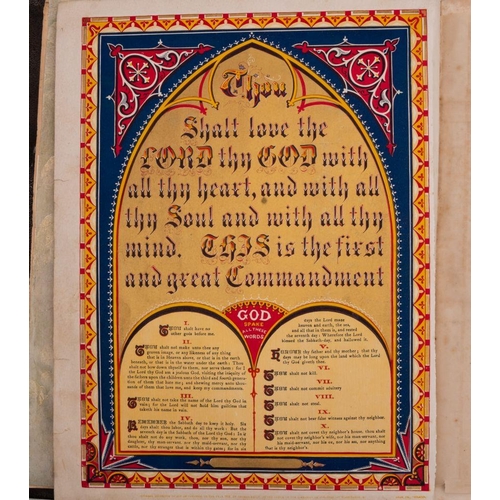 Thou
Shalt love the
LORD thy GOD with
all thy heart, and with all
thy Soul and with all thy
mind. THIS is the first
and great Commandment
GOD
SPAKE
ALL THESE
WORDS.
I.
THOU shalt have no
other gods before me.
II.
THOU shalt not make unto thee any
graven image, or any likeness of any thing
that is in Heaven above, or that is in the earth
beneath, or that is in the water under the earth: Thou
shalt not bow down thyself to them, nor serve them: for I
the Lord thy God am a jealous God, visiting the iniquity of
the fathers upon the children unto the third and fourth genera-
tion of them that hate me; and shewing mercy unto thou-
sands of them that love me, and keep my commandments.
III.
THOU shalt not take the name of the Lord thy God in
vain; for the Lord will not hold him guiltless that
taketh his name in vain.
IV.
REMEMBER the Sabbath day to keep it holy. Six
days shalt thou labor, and do all thy work: But the
seventh day is the Sabbath of the Lord thy God: in it
thou shalt not do any work, thou, nor thy son, nor thy
daughter, thy man-servant, nor thy maid-servant, nor thy
cattle, nor thy stranger that is within thy gates; for in six
days the Lord made
heaven and earth, the sea,
and all that in them is, and rested
the seventh day: Wherefore the Lord
blessed the Sabbath-day, and hallowed it.
V.
HONOUR thy father and thy mother; that thy
days may be long upon the land which the Lord
thy God giveth thee.
VI.
THOU shalt not kill.
VII.
THOU shalt not commit adultery
VIII.
THOU shalt not steal.
IX.
THOU shalt not bear false witness against thy neighbor.
X.
THOU shalt not covet thy neighbor's house, thou shalt
not covet thy neighbor's wife, nor his man-servant, nor
his maid-servant, nor his ox, nor his ass, nor anything
that is thy neighbor's.